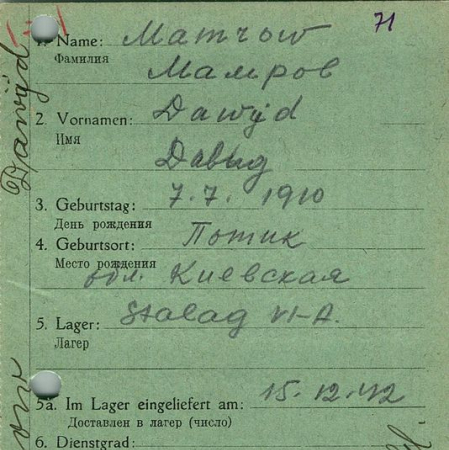 71
1. Name: Matrow
Фамилия
Матров
2. Vornamen: Dawyd
Имя
Давыд
3. Geburtstag: 7.7. 1910
День рождения
4. Geburtsort: Потик
Место рождения
обл. Киевская
5. Lager: Stalag VI-A.
Лагер
5a. Im Lager eingeliefert am: 15.12.42
Доставлен в лагер (число)
6. Dienstgrad:
Dawyd